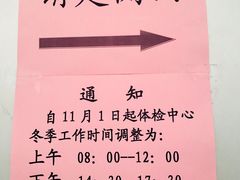 通 知
自11月1日起体检中心
冬季工作时间调整为:
上午 08:00--12:00
下午 14:30--17:30